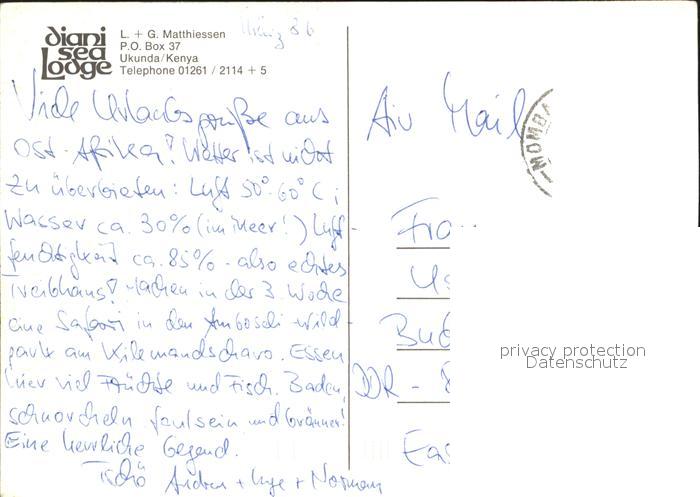 März 86
diani sea Lodge
L. + G. Matthiessen
P.O. Box 37
Ukunda/Kenya
Telephone 01261 / 2114 + 5
Viele Urlaubsgrüße aus
Ost-Afrika! Wetter ist nicht
zu überbieten: Luft 50°-60° C;
Wasser ca. 30% (im Meer!) Luft-
feuchtigkeit ca. 85% - also echtes
Treibhaus! Machen in der 3. Woche
eine Safari in den Amboseli-Wild-
park am Kilemandscharo. Essen
hier viel Früchte und Fisch. Baden,
schnorcheln, faulsein und bräunen!
Eine herrliche Gegend.
Tschö Andrea + Inge + Normann
Air Mail
MOMBA
Fra
Bud
DDR -
privacy protection
Datenschutz